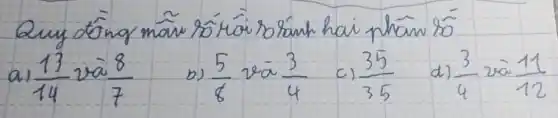 Quy đồng mẫu số rồi so sánh hai phân số
a) 13/14 và 8/7 b) 5/8 và 3/4 c) 35/35 d) 3/4 và 11/12